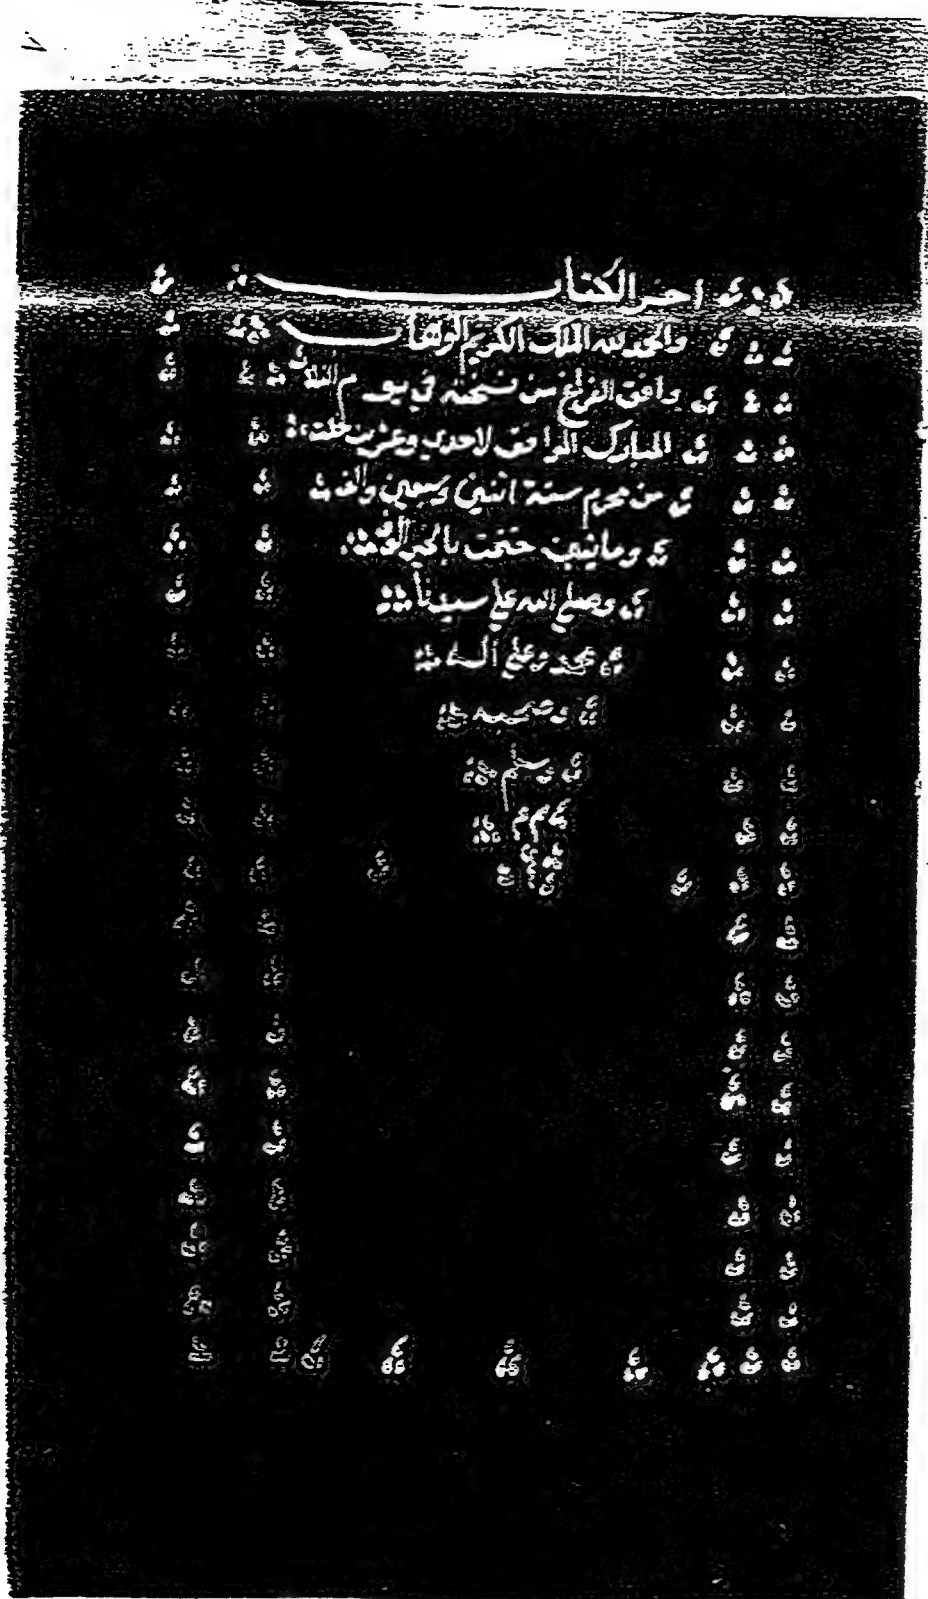 اخر الكتاب
والحمد لله الملك الكريم الوهاب
وافق الفراغ من نسخته في يوم الثلاث
المبارك الموافق لاحدي وعشرين خلت
من محرم سنة اثنين وسبعين والف
ومايتين ختمت بالخير
وصلي الله علي سيدنا
محمد وعلي اله
وصحبه
وسلم
م م